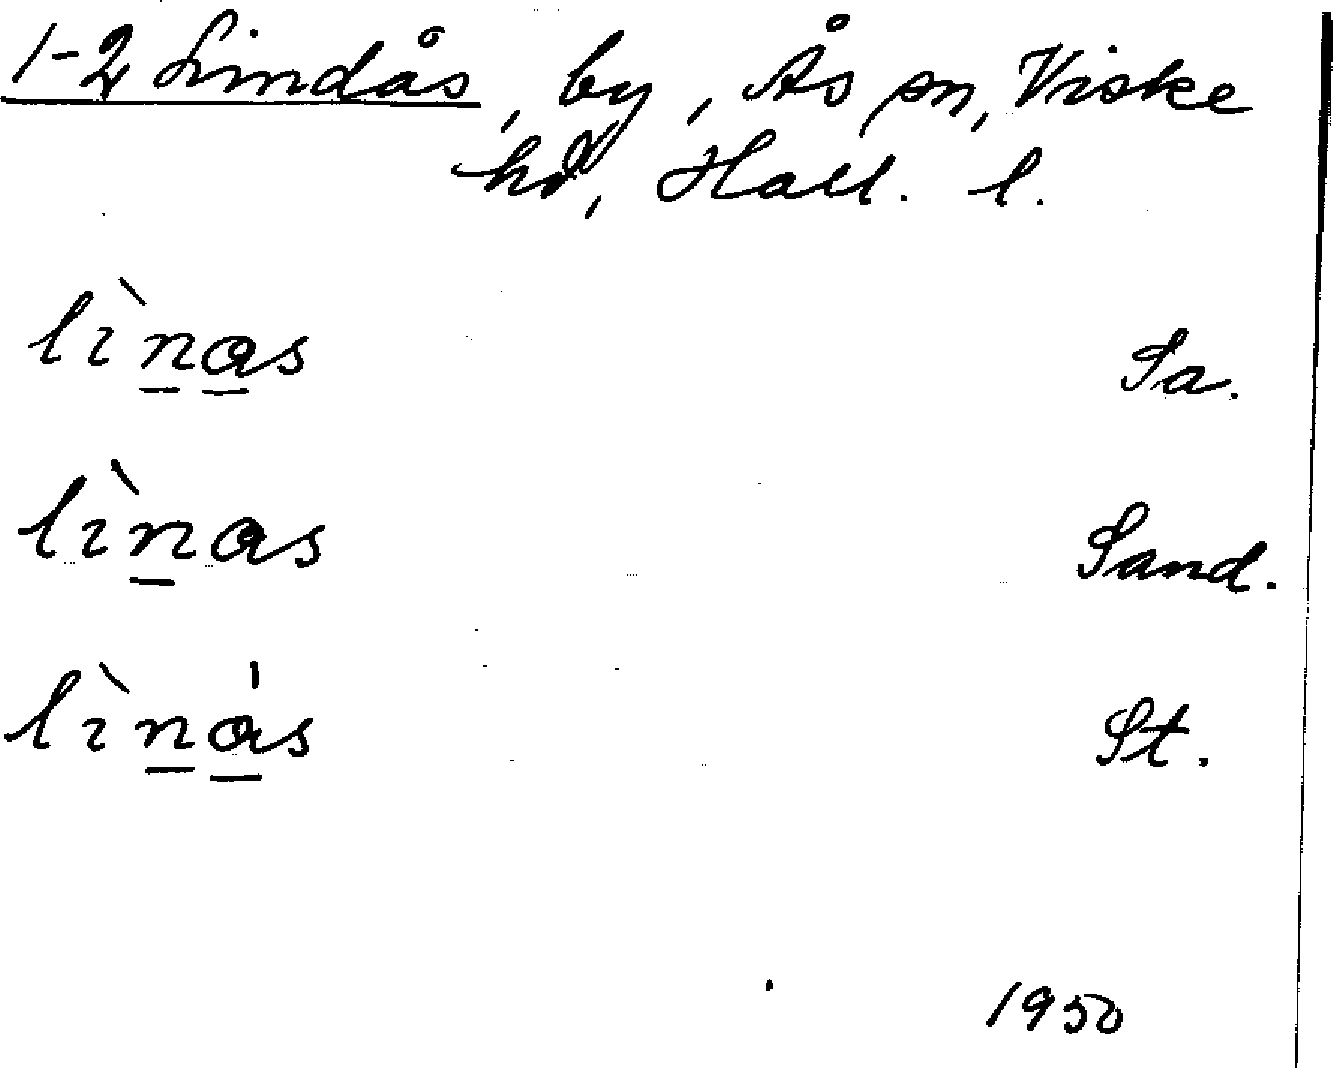 1-2 Lindås, by, Ås sn, Viske
hd, Hall. l.
lìnas Sa.
lìnas Sand.
lìnás St.
1950